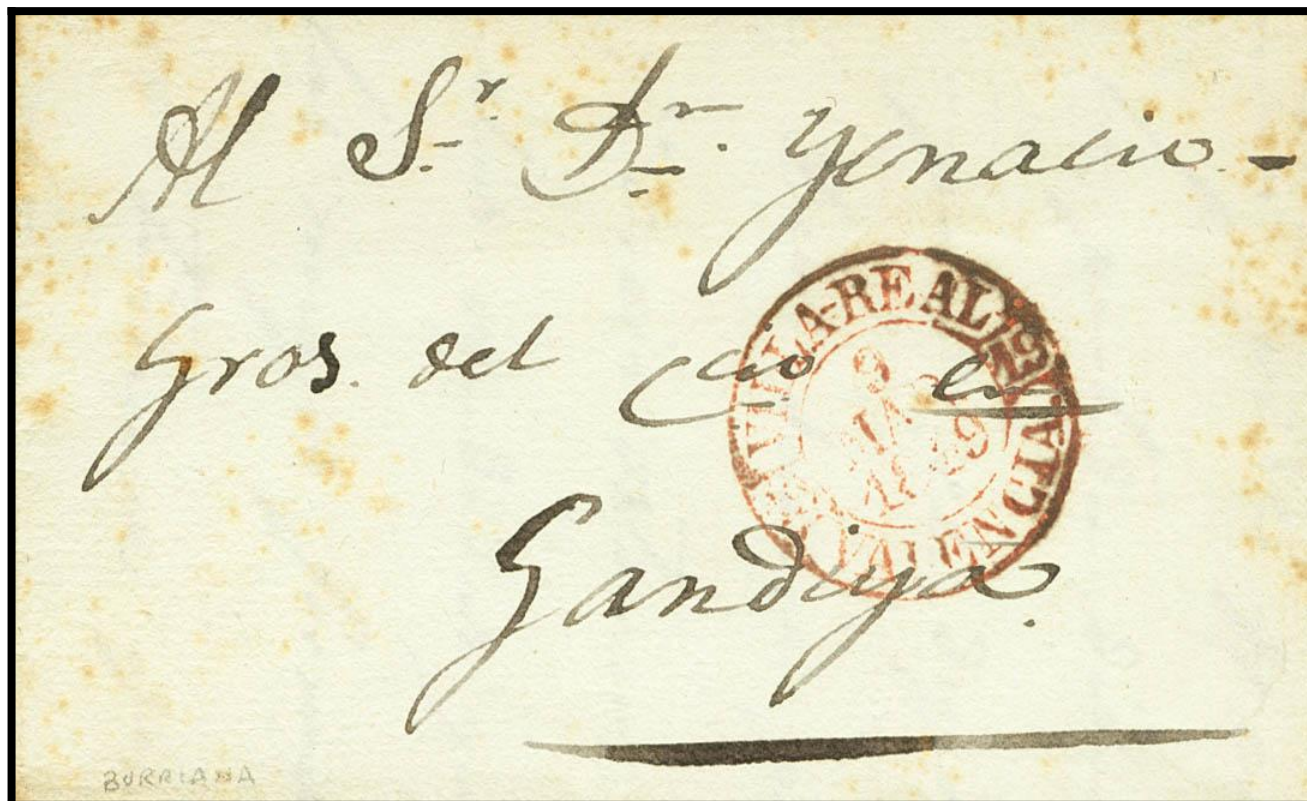 Al S.r D.n Ygnacio -
Gros. del Ccio en
Gandiya.
VILLA-REAL
9
1849
VALENCIA
BURRIANA